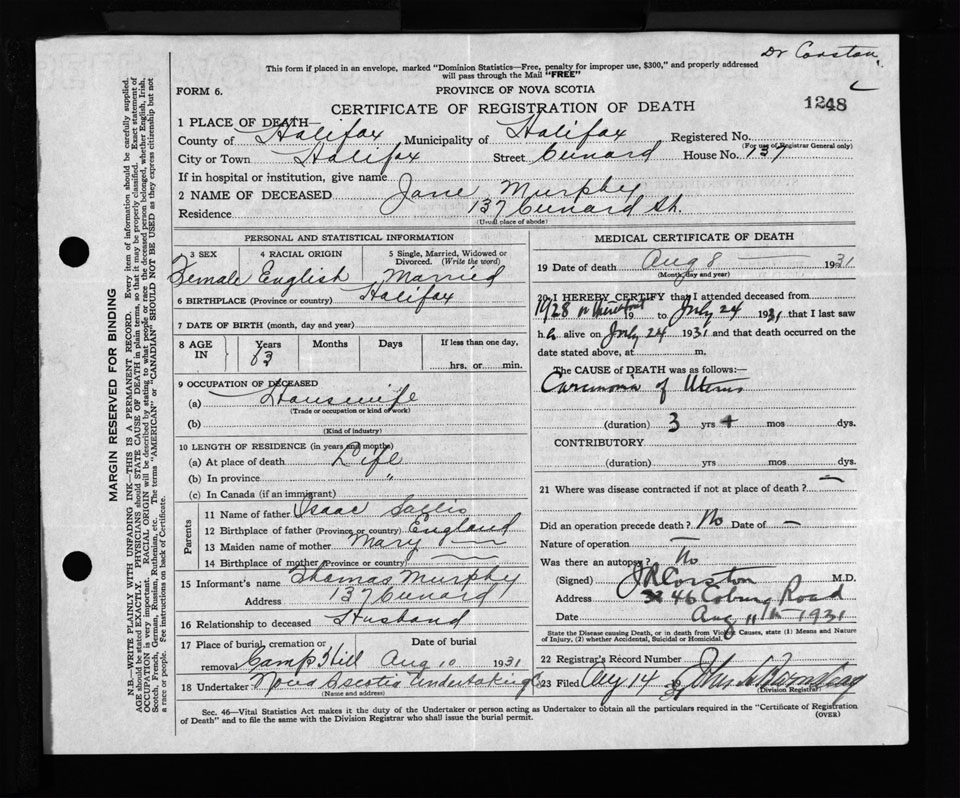 Dr Corston,
This form if placed in an envelope, marked "Dominion Statistics—Free, penalty for improper use, $300," and properly addressed
will pass through the Mail "FREE"
FORM 6.
PROVINCE OF NOVA SCOTIA
1248
CERTIFICATE OF REGISTRATION OF DEATH
1 PLACE OF DEATH—
County of Halifax Municipality of Halifax Registered No.
(For use of Registrar General only)
City or Town Halifax Street Cunard House No. 137
If in hospital or institution, give name
2 NAME OF DECEASED Jane Murphy
Residence 137 Cunard St.
(Usual place of abode)
PERSONAL AND STATISTICAL INFORMATION
3 SEX 4 RACIAL ORIGIN 5 Single, Married, Widowed or
Divorced. (Write the word)
Female English Married
6 BIRTHPLACE (Province or country) Halifax
7 DATE OF BIRTH (month, day and year)
8 AGE IN Years Months Days If less than one day,
63 hrs. or min.
9 OCCUPATION OF DECEASED
(a) Housewife
(Trade or occupation or kind of work)
(b)
(Kind of industry)
10 LENGTH OF RESIDENCE (in years and months)
(a) At place of death Life
(b) In province "
(c) In Canada (if an immigrant)
Parents
11 Name of father Isaac
12 Birthplace of father (Province or country) England
13 Maiden name of mother Mary —
14 Birthplace of mother (Province or country) —
15 Informant's name Thomas Murphy
Address 137 Cunard
16 Relationship to deceased Husband
17 Place of burial, cremation or Date of burial
removal Camp Hill Aug 10 1931
18 Undertaker Nova Scotia Undertaking Co
(Name and address)
MEDICAL CERTIFICATE OF DEATH
19 Date of death Aug 8 1931
(Month, day and year)
20 I HEREBY CERTIFY that I attended deceased from
1928 19 to July 24 1931 that I last saw
h alive on July 24 1931 and that death occurred on the
date stated above, at m.
The CAUSE of DEATH was as follows:—
Carcinoma of Uterus
(duration) 3 yrs + mos dys.
CONTRIBUTORY
(duration) yrs mos dys.
21 Where was disease contracted if not at place of death? —
Did an operation precede death? No Date of —
Nature of operation —
Was there an autopsy? No
(Signed) J R Corston M.D.
Address 46 Coburg Road
Date Aug 11th 1931
State the Disease causing Death, or in death from Violent Causes, state (1) Means and Nature
of Injury, (2) whether Accidental, Suicidal or Homicidal.
22 Registrar's Record Number
23 Filed Aug 14 31
(Division Registrar)
Sec. 46—Vital Statistics Act makes it the duty of the Undertaker or person acting as Undertaker to obtain all the particulars required in the "Certificate of Registration
of Death" and to file the same with the Division Registrar who shall issue the burial permit.
(OVER)
MARGIN RESERVED FOR BINDING
N.B.—WRITE PLAINLY WITH UNFADING INK—THIS IS A PERMANENT RECORD. Every item of information should be carefully supplied.
AGE should be stated EXACTLY. PHYSICIANS should STATE CAUSE OF DEATH in plain terms, so that it may be properly classified. Exact statement of
OCCUPATION is very important. RACIAL ORIGIN will be described by stating to what people or race the deceased person belonged, whether English, Irish,
Scotch, French, German, Russian, Ruthenian, etc. The terms "AMERICAN" or "CANADIAN" SHOULD NOT BE USED as they express citizenship but not
a race or people. See instructions on back of Certificate.